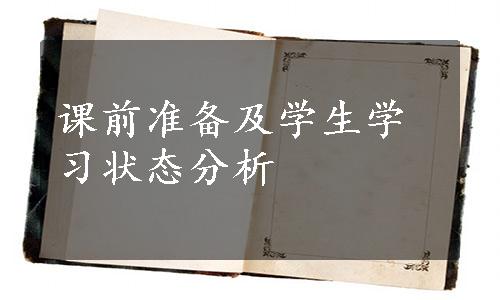 课前准备及学生学
习状态分析